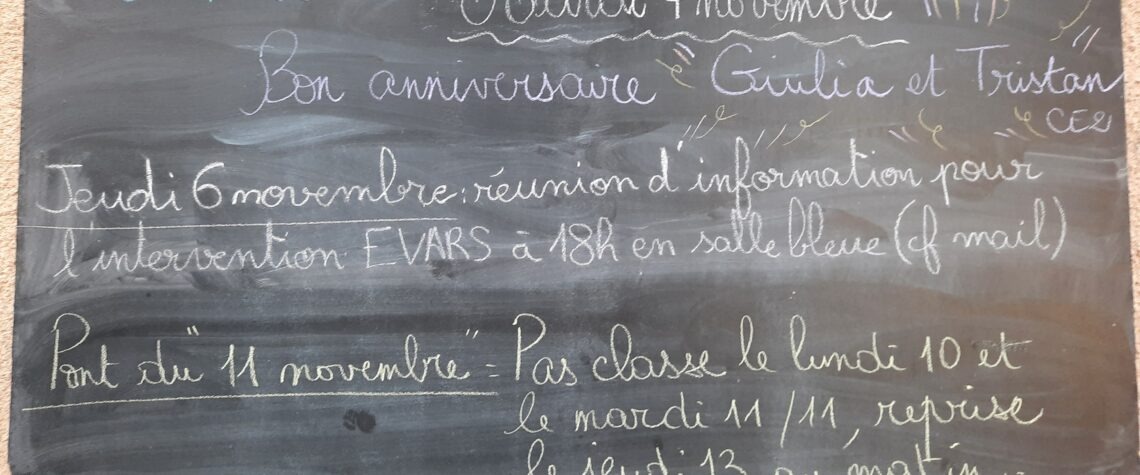 Mardi 4 novembre
Bon anniversaire Giulia et Tristan
CE2
Jeudi 6 novembre : réunion d'information pour
l'intervention EVARS à 18h en salle bleue (cf mail)
Pont du "11 novembre" = Pas classe le lundi 10 et
le mardi 11/11, reprise
le jeudi 13 au matin